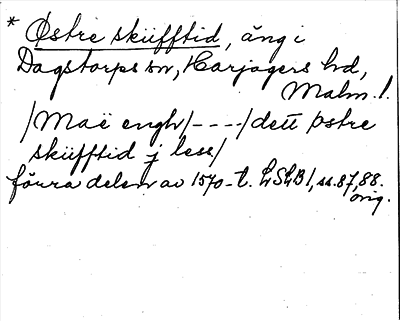 * Østre skiifftid, äng i
Dagstorps sn, Harjagers hd,
Malm. l.
/Maë engh/----/dett østre
skiifftid j less/
förra delen av 1570-t. LSLB 1, ss. 87, 88.
orig.